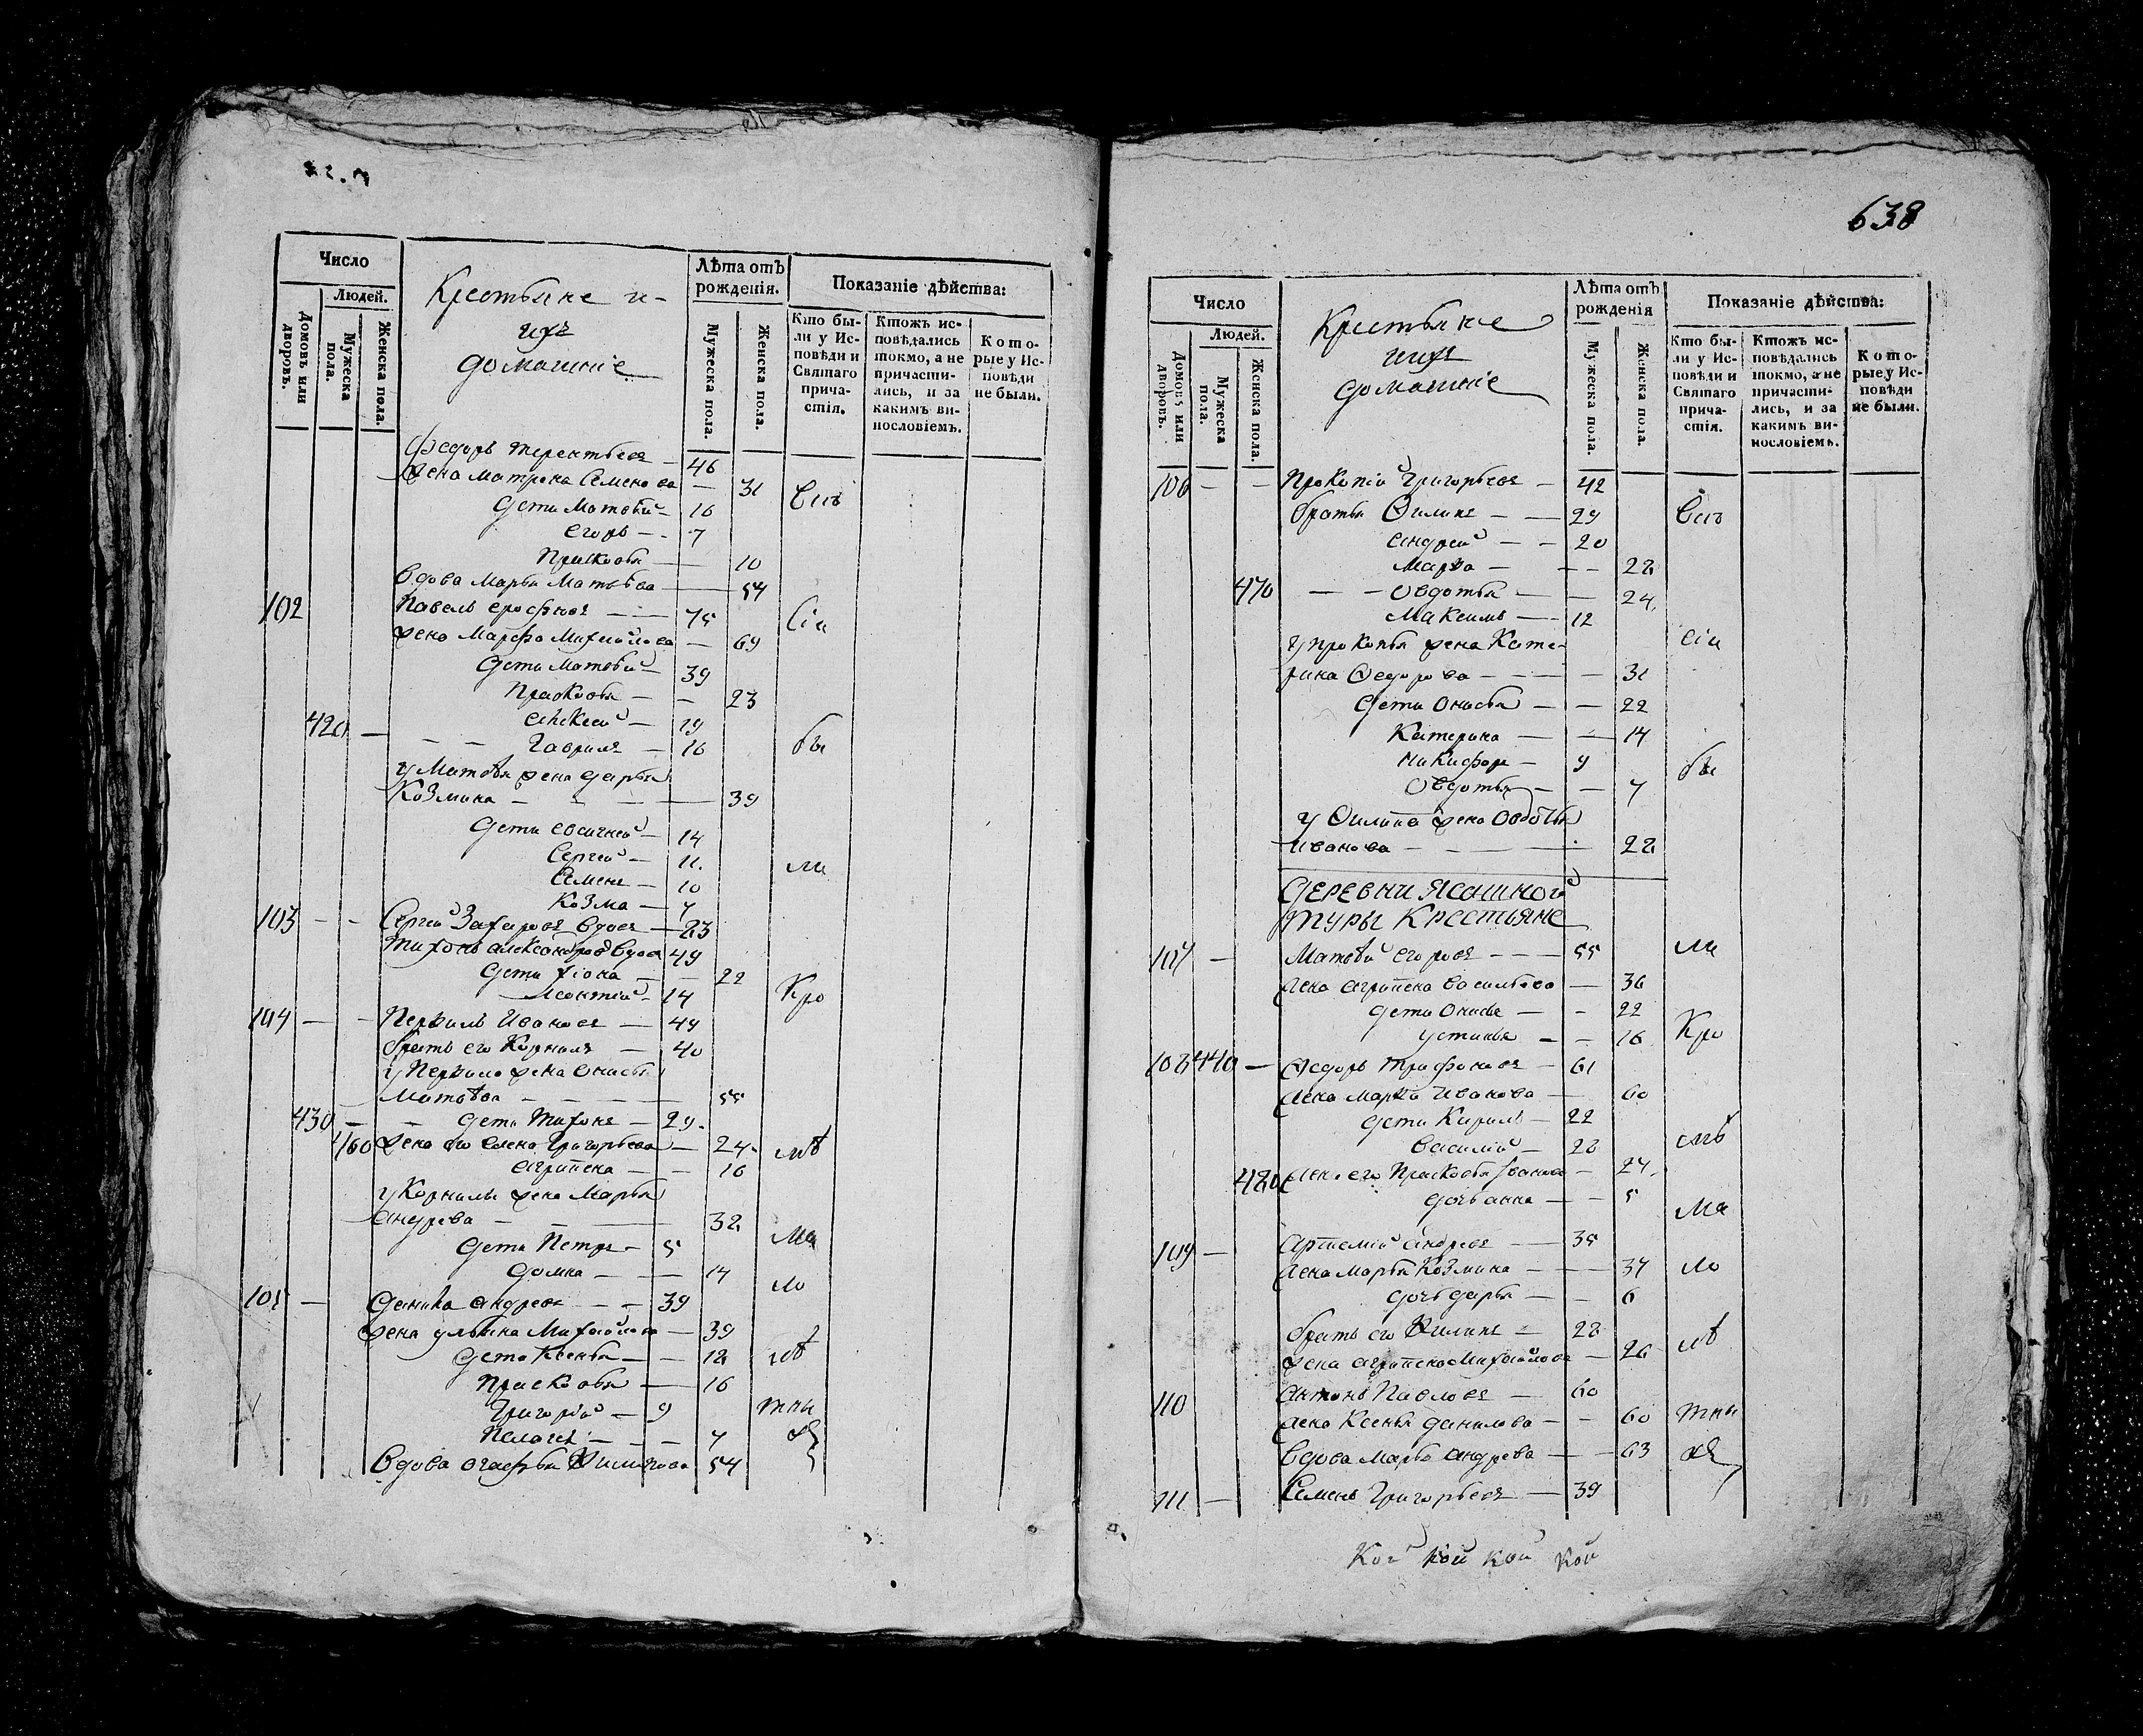 Число
Людей.
Домовъ или дворовъ.
Мужеска пола.
Женска пола.
Крестьяне и
ихъ
домашніе
Лѣта отъ рожденія.
Мужеска пола.
Женска пола.
Показаніе дѣйства:
Кто были у Исповѣди и Святаго причастія.
Ктожъ исповѣдались токмо, а не причастились, и за какимъ винословіемъ.
Которые у Исповѣди не были.
Федоръ Терентьевъ — 46
жена Матрона Семенова — 31
дети Матвѣй — 16
Егоръ — 7
Прасковья — 10
вдова Марья Матвѣва — 54
102 Павелъ Ерофѣевъ — 75 Сіи
жена Марфа Михайлова — 69
дети Матвѣй — 39
Прасковья — — 23
Алѣксѣй — 19
420 — — — Гаврила — 16 бы
у Матвѣя жена Дарья
Козмина — — — 39
дети Евсигней — 14
Сергей — 11. ли
Семенъ — 10
Козма — 7
103 — — Сергей Захаровъ вдовъ — 23
Тихонъ Александровъ вдовъ 49
дети Хіона — — 22
Леонтій — 14 Кро
104 — — Перфилъ Ивановъ — 49
братъ его Корнила — 40
у Перфила жена Анисья
Матвѣва — — — 55
430 — — дети Тихонъ — 29.
460 жена его Елена Григорьева — 24. мѣ
Агрипена — — 16
у Корнилы жена Марья
Андрева — — — 32
дети Петръ — 5 Ма
Домна — — 14
105 — Данила Андревъ — — 39 ло
жена Ульяна Михайлова — 39
дети Ксенья — — 18 лѣ
Прасковья — 16
Григорій — 9 тны
Пелагея — — — 7
вдова Агафья Филипова 54
638
Число
Людей.
Домовъ или дворовъ.
Мужеска пола.
Женска пола.
Крестьяне
ихъ
домашніе
Лѣта отъ рожденія
Мужеска пола.
Женска пола.
Показаніе дѣйства:
Кто были у Исповѣди и Святаго причастія.
Ктожъ исповѣдались токмо, а не причастились, и за какимъ винословіемъ.
Которые у Исповѣди не были.
106 — — Прокопій Григорьевъ — 42
братья Филипъ — — 29
Андрей — — 20
Марфа — — — 28
470 — — Овдотья — — 24.
Максимъ — — 12
у Прокопья жена Кате- сіи
рина Федорова — — — 31
дети Анисья — — 22
Катерина — — 14
Никифоръ — 9 бы
Овдотья — — 7
у Филипа жена Овдотья
Иванова — — — 28
Деревни Ясашной
Туры Крестьяне
107 — Матвѣй Егоровъ — — — 55 ли
жена Агрипена Васильева — 36
дети Анисья — — 22
Устинья — — 16 Кро
108 440 — Федоръ Трифоновъ — 61
жена Марья Иванова — 60
дети Кирилъ — 22
Василій — 28 мѣ
480 жена его Прасковья Иванова — 24.
дочь Анна — — 5 Ма
109 — Артемій Андревъ — 35
жена Марья Козмина — — 37 ло
дочь Дарья — — 6
братъ его Филипъ — 28
жена Агрипена Михайлова — 26 лѣ
110 Антонъ Павловъ — 60
жена Ксенья Данилова — — 60 тны
вдова Марья Андрева — — 63
111 — Семенъ Григорьевъ — 39
Кой кой кой кой